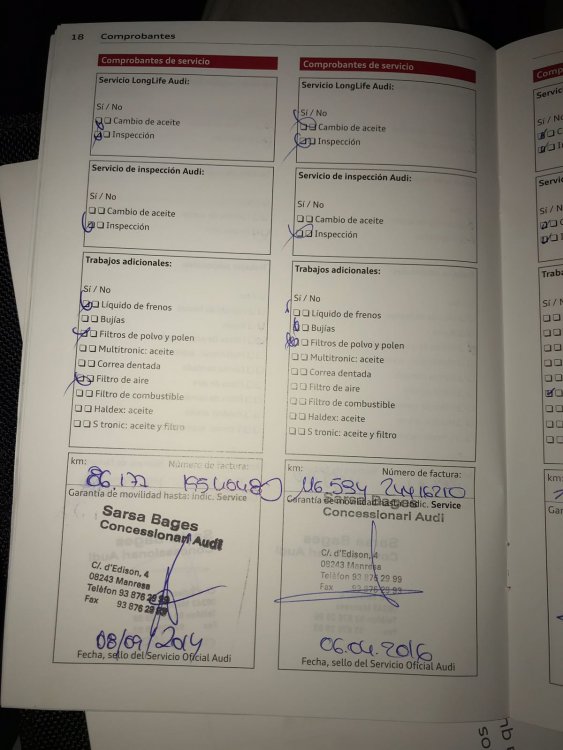 18 Comprobantes
Comprobantes de servicio
Servicio LongLife Audi:
Sí / No
Cambio de aceite
Inspección
Servicio de inspección Audi:
Sí / No
Cambio de aceite
Inspección
Trabajos adicionales:
Sí / No
Líquido de frenos
Bujías
Filtros de polvo y polen
Multitronic: aceite
Correa dentada
Filtro de aire
Filtro de combustible
Haldex: aceite
S tronic: aceite y filtro
km: Número de factura:
86.177
Garantía de movilidad hasta: indic. Service
Sarsa Bages
Concessionari Audi
C/. d'Edison, 4
08243 Manresa
Telèfon 93 876 29 99
Fax 93 876 29 99
08/09/2014
Fecha, sello del Servicio Oficial Audi
Comprobantes de servicio
Servicio LongLife Audi:
Sí / No
Cambio de aceite
Inspección
Servicio de inspección Audi:
Sí / No
Cambio de aceite
Inspección
Trabajos adicionales:
Sí / No
Líquido de frenos
Bujías
Filtros de polvo y polen
Multitronic: aceite
Correa dentada
Filtro de aire
Filtro de combustible
Haldex: aceite
S tronic: aceite y filtro
km: Número de factura:
116.594 24416210
Garantía de movilidad hasta: indic. Service
Sarsa Bages
Concessionari Audi
C/. d'Edison, 4
08243 Manresa
Telèfon 93 876 29 99
Fax 93 876 29 99
06.04.2016
Fecha, sello del Servicio Oficial Audi
Sí / No
Sí / N
km: